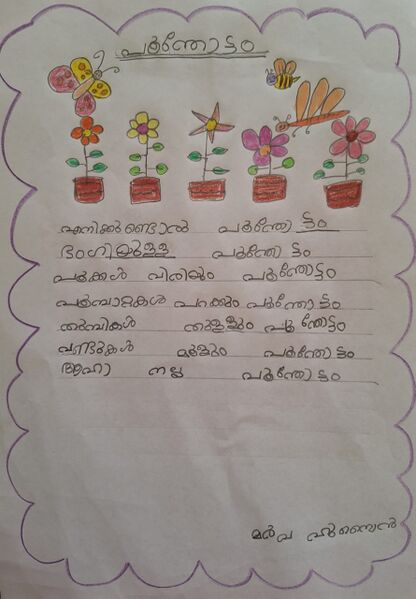 പൂന്തോട്ടം
എനിക്കുണ്ടൊരു പൂന്തോട്ടം
ഭംഗിയുള്ള പൂന്തോട്ടം
പൂക്കൾ വിരിയും പൂന്തോട്ടം
പൂമ്പാറ്റകൾ പറക്കും പൂന്തോട്ടം
തുമ്പികൾ തുള്ളും പൂന്തോട്ടം
വണ്ടുകൾ മൂളും പൂന്തോട്ടം
ആഹാ നല്ല പൂന്തോട്ടം
മർവ ഹുസൈൻ